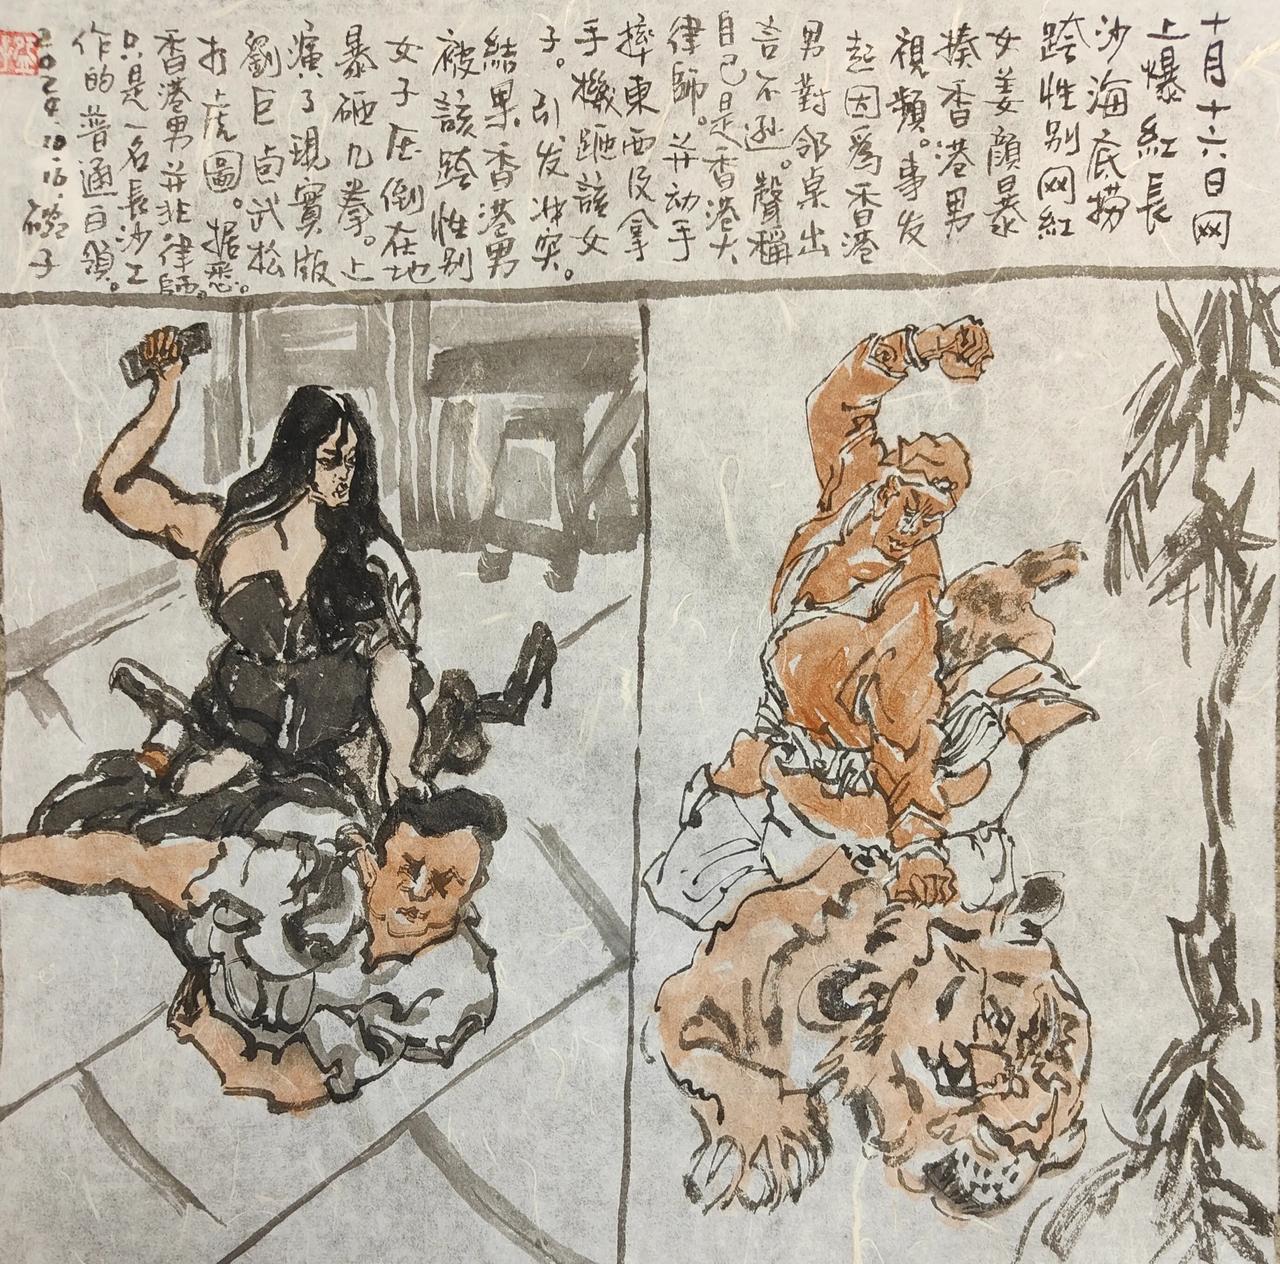 十月十六日网
上爆紅長
沙海底撈
跨性别网紅
女姜顏暴
揍香港男
視頻。事发
起因爲香港
男對邻桌出
言不逊。聲稱
自己是香港大
律師。并动手
摔東西及拿
手機砸該女
子。引发冲突。
結果香港男
被該跨性别
女子压倒在地
暴砸几拳。上
演了現實版
劉巨卤武松
打虎圖。据悉。
香港男并非律師。
只是一名長沙工
作的普通白領。
二〇二四.10.16.